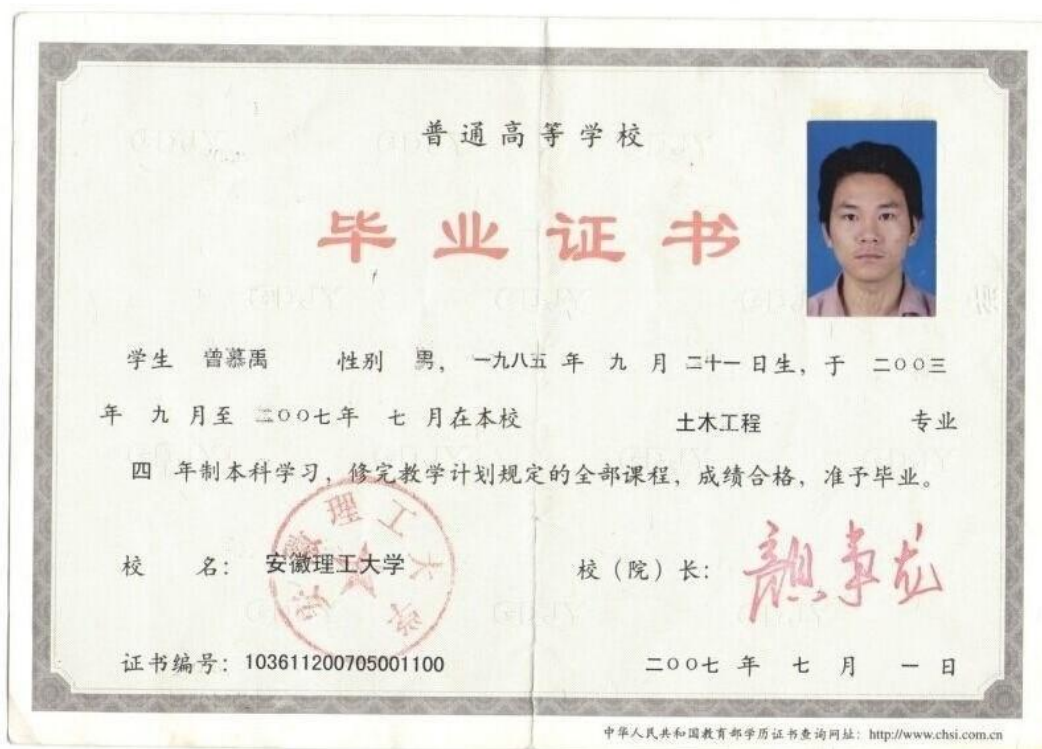 普通高等学校
毕业证书
学生 曾慕禹 性别 男，一九八五 年 九 月 二十一 日生，于 二００三
年 九 月至 二００七年 七 月在本校 土木工程 专业
四 年制本科学习，修完教学计划规定的全部课程，成绩合格，准予毕业。
安徽理工大学
校 名： 安徽理工大学 校（院）长：
证书编号：103611200705001100 二００七 年 七 月 一 日
中华人民共和国教育部学历证书查询网址：http://www.chsi.com.cn